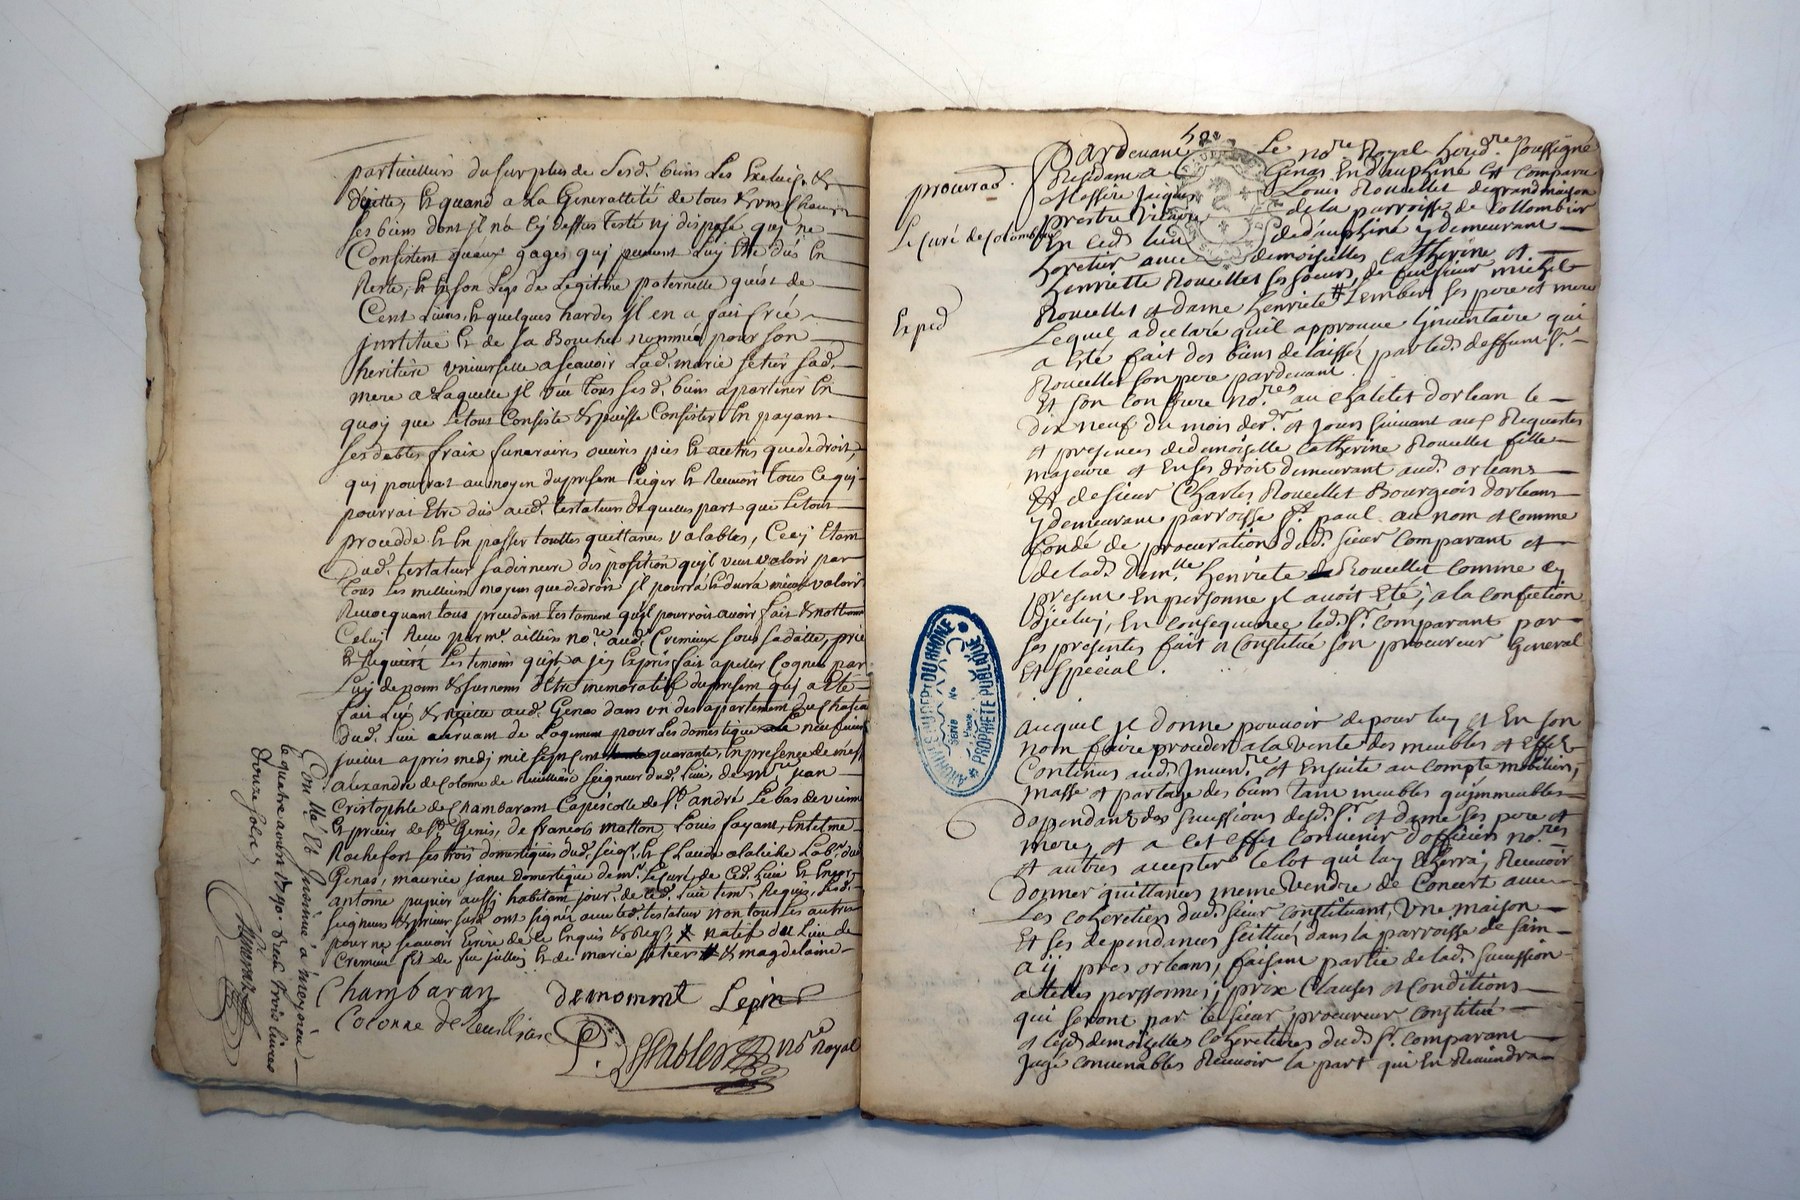 particulliers du surplus de sesd. biens Les Exclus. &
dejette, Et quand a La Generallité de tous & uns Chacuns
ses biens dont jl na Cy dessus testé ny disposé, quj ne
Consistent quaux gages quj peuvent Luy Etre dûs En
Reste, Et En son Legs de Legitime paternelle quest de
Cent Livres, Et quelques hardes jl en a fait Crée
jnstitué Et de sa Bouche nommée pour son
heritiere universelle ascavoir Lad. marie setier sad.
mere a Laquelle jl veut tous sesd. biens apartenir En
quoy que Letout Consiste & puisse Consister En payant
ses debtes fraix funeraires oeuvres pies Et autres que de droit
quj pourrat au moyen du present Exiger Et Recevoir tous Ce quj
pourrat Etre dus aud. testateur De quelles part que Le tout
procedde Et En passer touttes quittances valables, Cecy Etant
Dud. testateur sa derniere disposition quil veut valoir par
tous les meilleurs moyens que de droit jl pourrá & devra mieux valoir
Revocquant tous precedant testament quil pourroit avoir fait & nottament
Celuj Receu par me. ailleurs nore. aud. Cremieu sous sa datte, prie
Et Requiere Les temoins quil a jcy Exprés fait apeller Cognus par
Luj de noms & surnoms detre memoratif du present quj a Eté
fait Leü & Recitté aud. Genas dans un des apartement du Chateau
Dud. Lieu servant de Logement pour Les domestique Le neufvieme
juillet apres medj mil sept cent quarante, En presence de mess.
alexandre de Colonne de Reuilliasse seigneur dud. Lieu, de mre. jean
Cristophle de Chambaran Capiscolle de St. andré Le bas de vienne
Et prieur de St. Genis, de francois matton, Louis fayant, Entelme
Rochefort ses trois domestiques dud. seigr. Et Claude alaliche Labr. dud.
Genas, maurice janin domestique de mr. Le Curé de Ced. Lieu Et Encor
antoine pupier aussj habitant jour. de Ced. Lieu tem. Requis, Lesd.
seigneur & prieur susd. ont signé avec led. testateur non tous Les autres
pour ne scavoir Ecrire de Ce Enquis & Requis, natif du Lieu de
Cremieu fils de feu & de marie setiers & magdelaine
Chambaran demommt Lepin
Colonne de Reuilliasse
Chables nore Royal
Con.lle Et Jnsinué à heyrieu
le quatre aoust 1740. Receu trois livres
douze sols
procuraõn.
Le Curé de Colombier
Exped
Pardevant Le nore. Royal heredre. soussigné
Residant a Genas En dauphiné Est Comparu
Messire Jacques Louis Rouellet degrandmaison
prestre vicaire de la parroisse de Collombier
En Ced. lieu de dauphiné y demeurant
heretier avec demoiselles Catherine et
henriette Rouellet ses soeurs, de feu sieur michel
Rouellet et dame henriete Lembert ses pere et mere
Lequel a declaré quil approuve Linventaire qui
a Eté fait des biens delaissés par led. deffunt sr.
Rouellet son pere pardevant
Et son Confrere nores. au Chatelet d'orlean le
dix neuf du mois der. et jours suivant aux Requestes
et presences de demoiselle Catherine Rouellet fille
majeure et En ses droit demeurant aud. orleans
& de sieur Charles Rouellet Bourgeois dorleans
y demeurant parroisse st. paul au nom et comme
fondé de procuration dud. sieur Comparant et
de lad. demlle. henriete Rouellet comme cy
present En personne jl avoit Eté, a la confection
djceluy, En consequence led. sr. comparant par
ses presentes fait et constitue son procureur General
Et special.
auquel jl donne pouvoir de pour luy et En son
nom faire proceder a la vente des meubles et Effets
Contenus aud. Invenre. et Ensuite au compte mobiliers,
masse et partage des biens tant meubles qu'jmmeubles
dependants des successions desd. sr. et dame ses pere et
mere, et a cet effet convenir d'officiers nores.
et autres accepter le lot qui luy Echerra, Recevoir
donner quittances meme Vendre de Concert avec
Les coheretiers dud. sieur constituant, Une maison
Et ses dependances scittuée dans la parroisse de sain
aij pres orleans, faisant partie de lad. succession
a telles personnes, prix Clauses et conditions
qui seront par le sieur procureur constitué
et lesd. demoiselles coheretieres dud. sr. comparant
Jugé convenables Recevoir la part qui En Reviendra
ARCHIVES DU DEPT DU RHÔNE
PROPRIÉTÉ PUBLIQUE